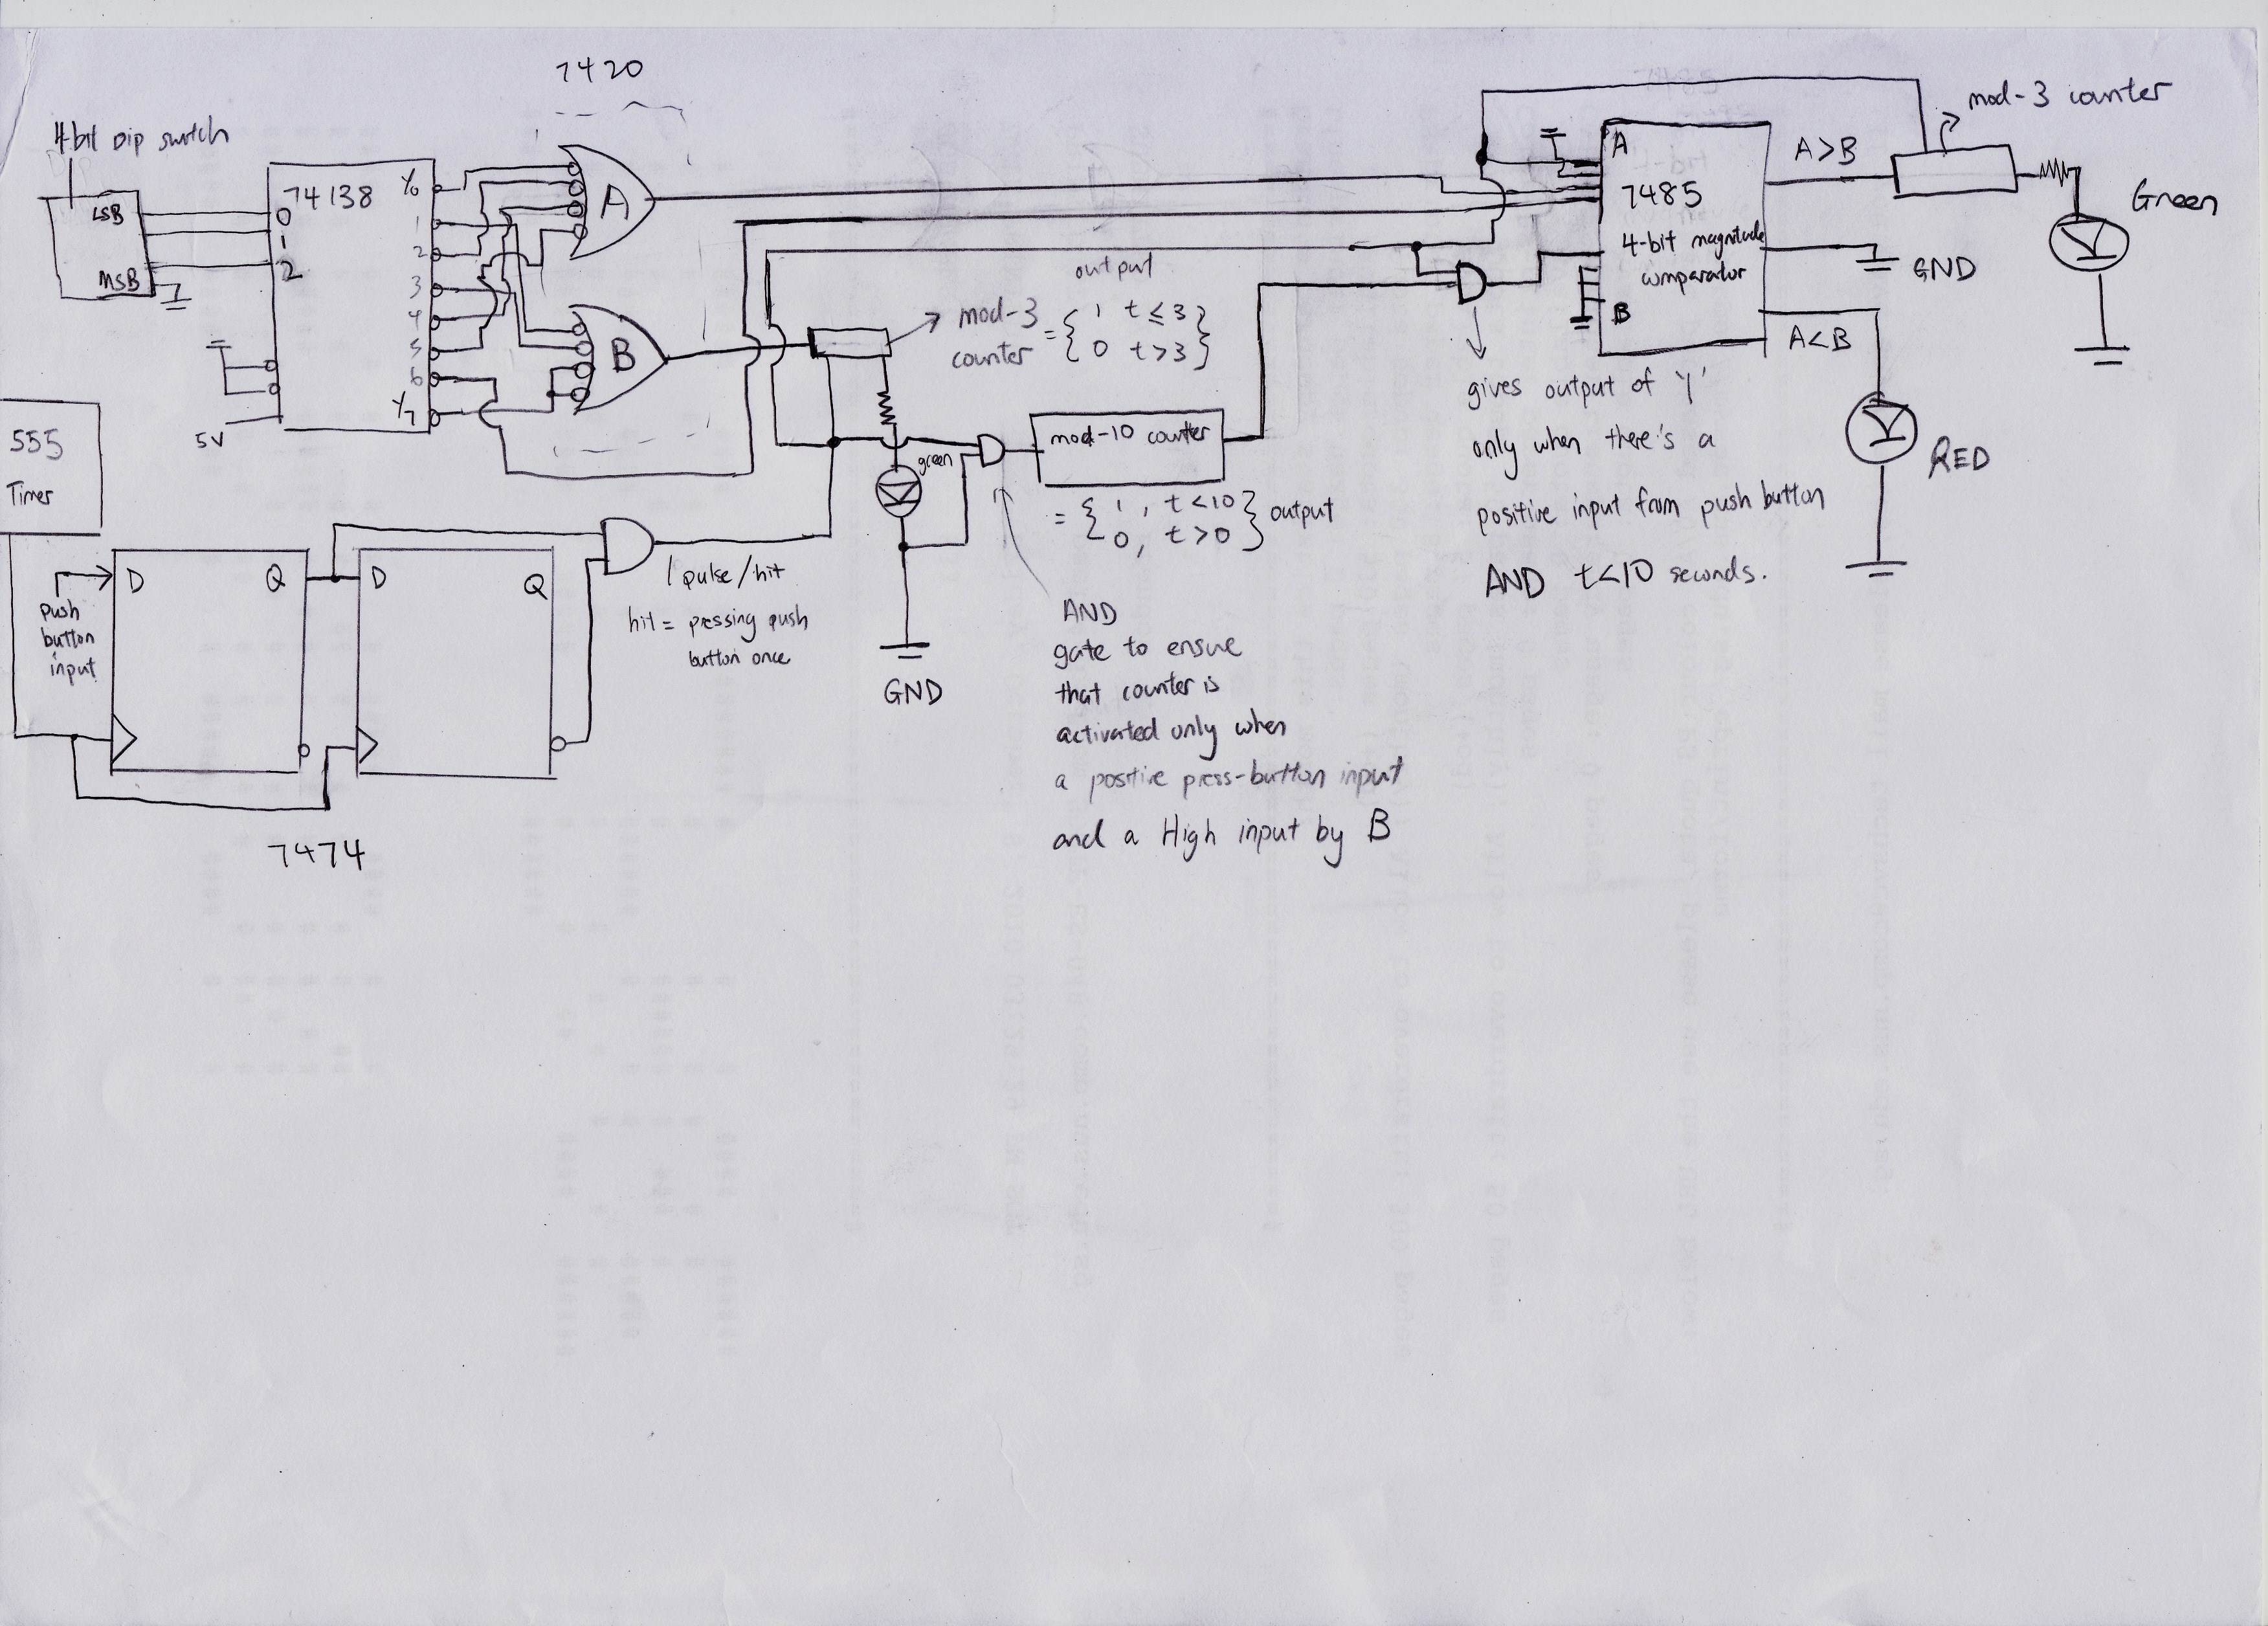 7420
4-bit Dip switch
LSB
MSB
74138
0
1
2
Y0
1
2
3
4
5
6
Y7
5V
A
B
555
Timer
D
Q
D
Q
push
button
input
7474
1 pulse/hit
hit = pressing push
button once
green
GND
output
mod-3
counter
= { 1 t ≤ 3
0 t > 3 }
mod-10 counter
= { 1, t < 10
0, t > 0 } output
AND
gate to ensure
that counter is
activated only when
a positive press-button input
and a High input by B
A
7485
4-bit magnitude
comparator
B
A>B
GND
A<B
mod-3 counter
Green
RED
gives output of '1'
only when there's a
positive input from push button
AND t<10 seconds.